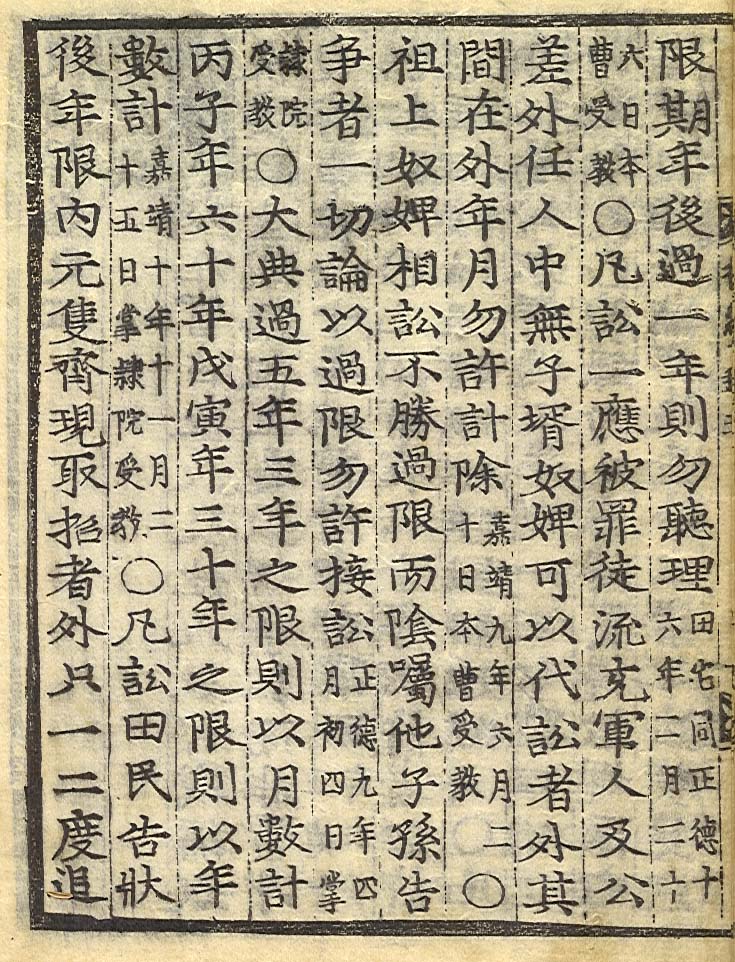 限期年後過一年則勿聽理田宅同正德十六年二月二十
六日本曹受教○凡訟一應被罪徒流充軍人及公
差外任人中無子壻奴婢可以代訟者外其
間在外年月勿許計除嘉靖九年六月二十日本曹受教○
祖上奴婢相訟不勝過限而陰囑他子孫告
爭者一切論以過限勿許接訟正德九年四月初四日掌
隸院受教○大典過五年三年之限則以月數計
丙子年六十年戊寅年三十年之限則以年
數計嘉靖十年十一月二十五日掌隸院受教○凡訟田民告狀
後年限內元隻齊現取招者外只一二度進